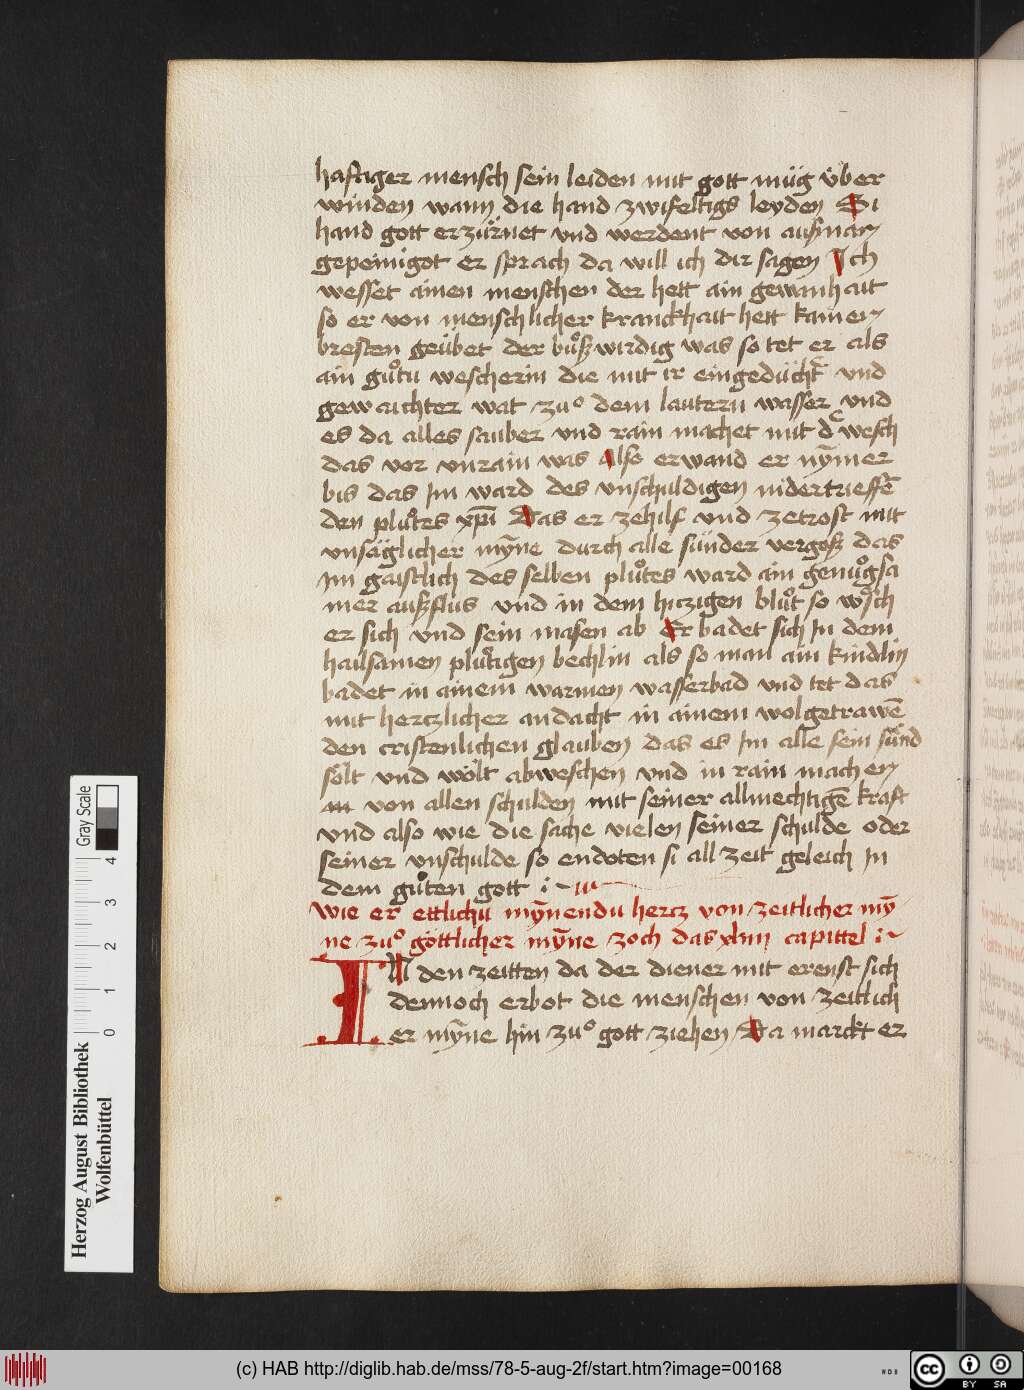 haftiger mensch sein leiden mit gott müg über
winden wann die hand zwifeltigs leyden Si
hand gott erzürnet vnd werdent von aufmar
gepeinigot er sprach da will ich dir sagen Ich
wesset ainen menschen der hett ain gewanhait
so er von menschlicher kranckhait hett kainen
bresten geübet der bůßwirdig was so tet er als
ain gůtu wescherin die mit ir eingedücht vnd
gewaichter wat zuͦ dem lautern wasser vnd
es da alles sauber vnd rain machet mit dͨ wesch
das vor vnrain was also erwand er nym̄er
bis das Im ward des vnschuldigen nidertrieffē
den plůtes xp̄i Das er zehilf vnd zetrost mit
vnsäglicher mȳne durch alle sünder vergoß das
Im gaistlich des selben plůtes ward ain genůgsa
mer außflus vnd in dem hiczigen blůt so wůsch
er sich vnd sein masen ab Er badet sich In dem
hailsamen plůtigen bechlin als so man ain kindlin
badet in ainem warmen wasserbad vnd tet das
mit herczlicher andacht in ainem wolgetrawē
den cristenlichen glauben das es Im alle sein sünd
sölt vnd wölt abweschen vnd in rain machen
in von allen schulden mit seiner allmechtigē kraft
vnd also wie die sache vielen seiner schulde oder
seiner vnschulde so endoten si all zeit geleich In
dem gůten gott :~
wie er ettlichu mȳnendu hercz von zeitlicher mȳ
ne zuͦ göttlicher mȳne zoch das xliiii capittel :~
IN den zeitten da der diener mit erenst sich
dennoch erbot die menschen von zeitlich
er mȳne hin zuͦ gott ziehen Da marckt er
Herzog August Bibliothek
Wolfenbüttel
0 1 2 3 4
Gray Scale
(c) HAB http://diglib.hab.de/mss/78-5-aug-2f/start.htm?image=00168
WDB
cc BY SA